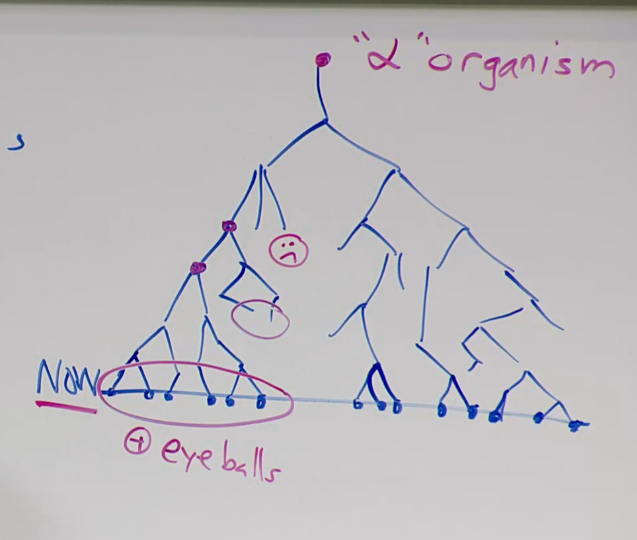 "α" organism
s
NOW
⊕ eyeballs